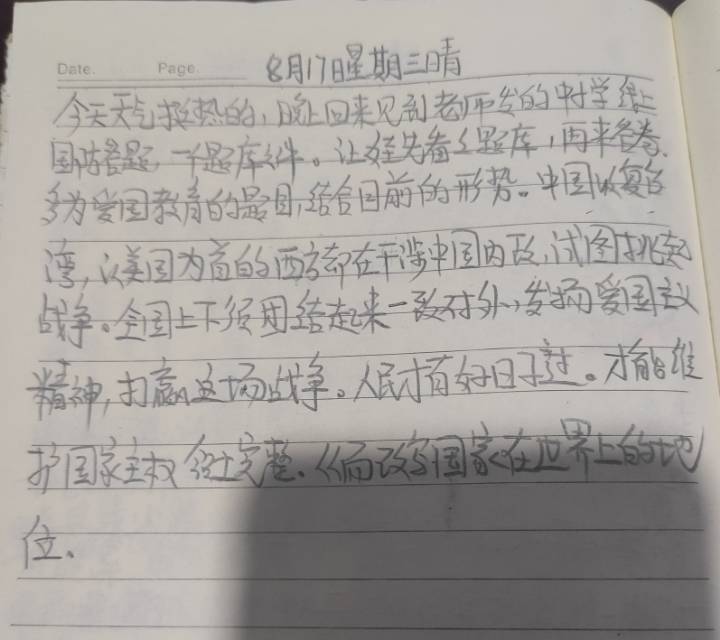 Date. Page. 8月17日星期三晴
今天天气挺热的,晚上回来见到老师发的中学线上
国防答题,一个题库文件。让娃先看了题库,再来答卷、
多为爱国教育的题目,结合目前的形势。中国收复台
湾,以美国为首的西方却在干涉中国内政,试图挑起
战争。全国上下须团结起来一致对外,发扬爱国主义
精神,打赢这场战争。人民才有好日子过。才能维
护国家主权领土完整、从而改写国家在世界上的地
位、